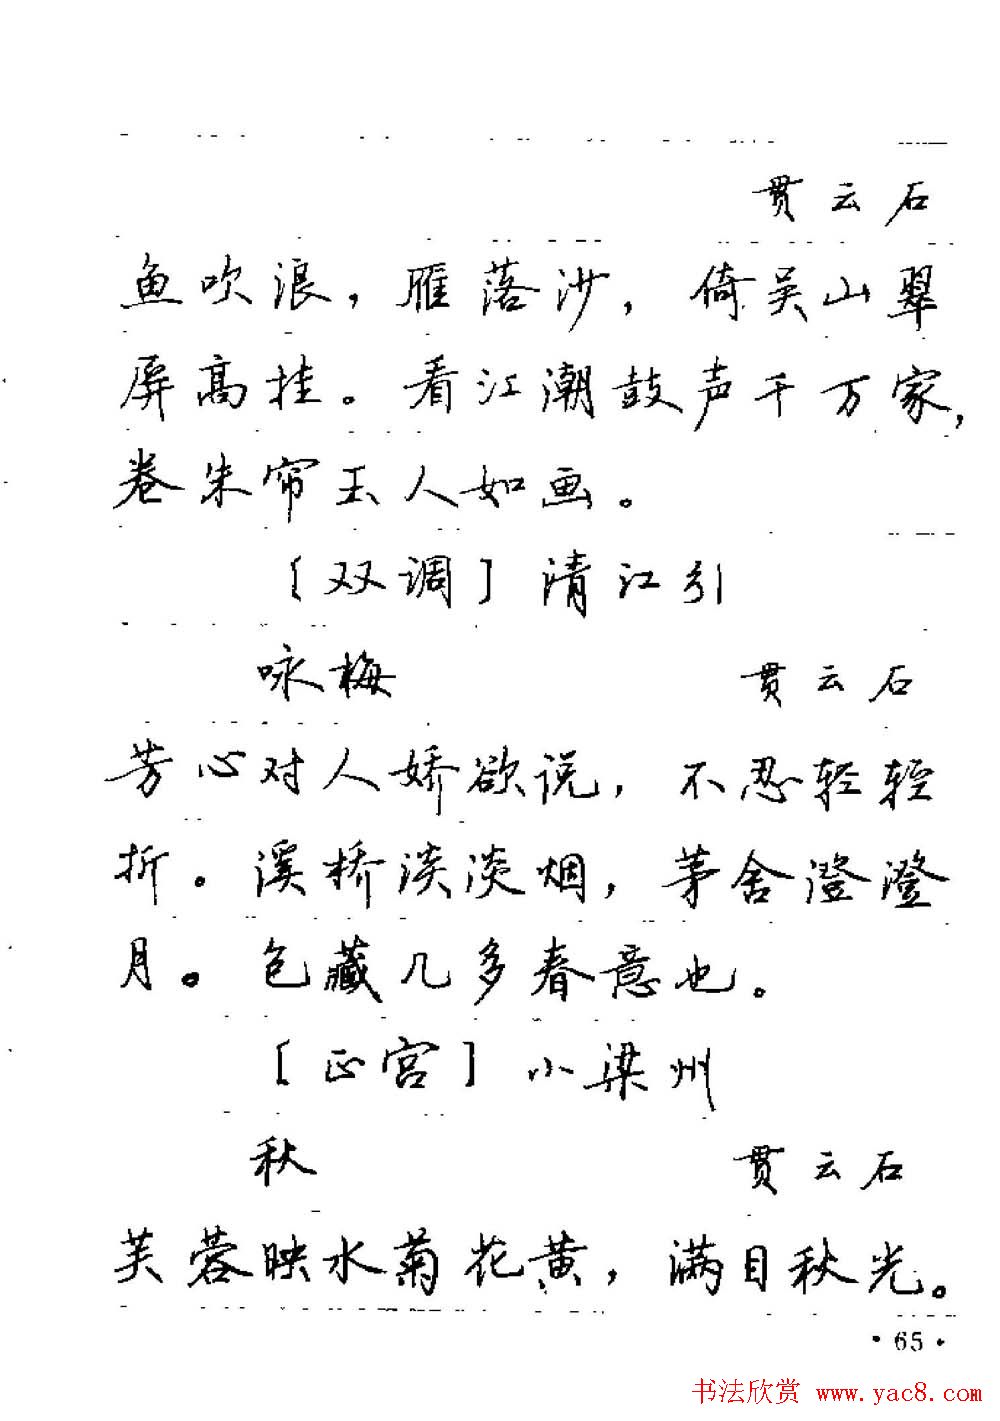 贯云石
鱼吹浪，雁落沙，倚吴山翠
屏高挂。看江潮鼓声千万家，
卷朱帘玉人如画。
〔双调〕清江引
咏梅　贯云石
芳心对人娇欲说，不忍轻轻
折。溪桥淡淡烟，茅舍澄澄
月。包藏几多春意也。
〔正宫〕小梁州
秋　贯云石
芙蓉映水菊花黄，满目秋光。
·65·
书法欣赏 www.yac8.com